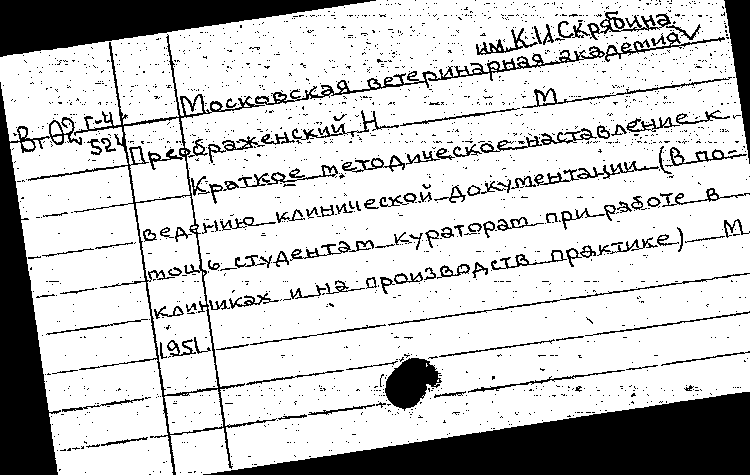 им. К.И.Скрябина.
Московская ветеринарная академия
Вг02 г-4
524
Преображенский, Н М
Краткое методическое наставление к
ведению клинической документации (В по-
мощь студентам кураторам при работе в
клиниках и на производств. практике) М
1951.